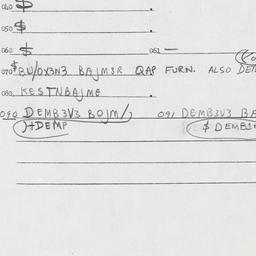 040 $ .
050 $ .
060 $ 061 —
070 $ BU/0X3N3 BAJM3R QAP FURN. ALSO DEM
080 KESTNBAJME .
090 DEMB3V3 BOJM/J 091 DEMB3V3 BA
)+DEMP $ DEMB3